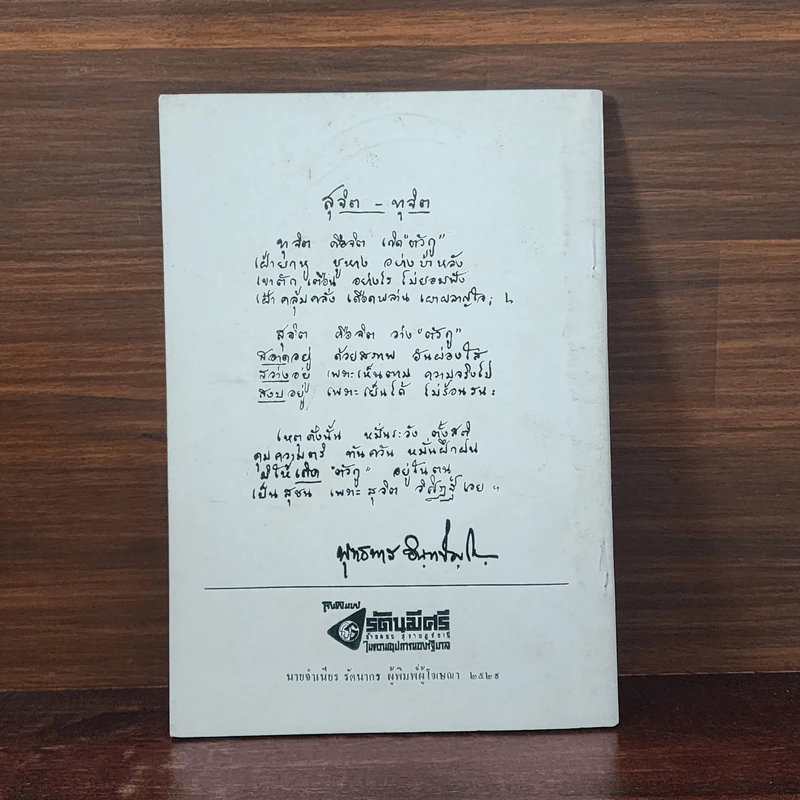 สุจิต - ทุจิต
ทุจิต คือจิต เกิด "ตัวกู"
เฝ้ายกหู ชูหาง อย่างบ้าหลัง
เขาตัก เตือน อย่างไร ไม่ยอมฟัง
เฝ้าคลุ้มคลั่ง เดือดพล่าน เผาผลาญใจ ;
สุจิต คือจิต ว่าง "ตัวกู"
สอาดอยู่ ด้วยสภาพ อันผ่องใส
สว่างอยู่ เพราะเห็นตาม ความจริงไป
สงบอยู่ เพราะเย็นได้ ไม่ร้อนรน :
เหตุดังนั้น หมั่นระวัง ตั้งสติ
คุมความตริ ทันควัน หมั่นฝึกฝน
มิให้เกิด "ตัวกู" อยู่ในตน
เป็น สุชน เพราะ สุจิต วิสิฏฐ์ เอย ฯ
พุทธทาส อินทปัญโญ
โรงพิมพ์
รัตนมีศรี
บ้านดอน สุราษฎร์ธานี
ในความอุปการของรัฐบาล
นายจำเนียร รัตนากร ผู้พิมพ์ผู้โฆษณา ๒๕๒๙